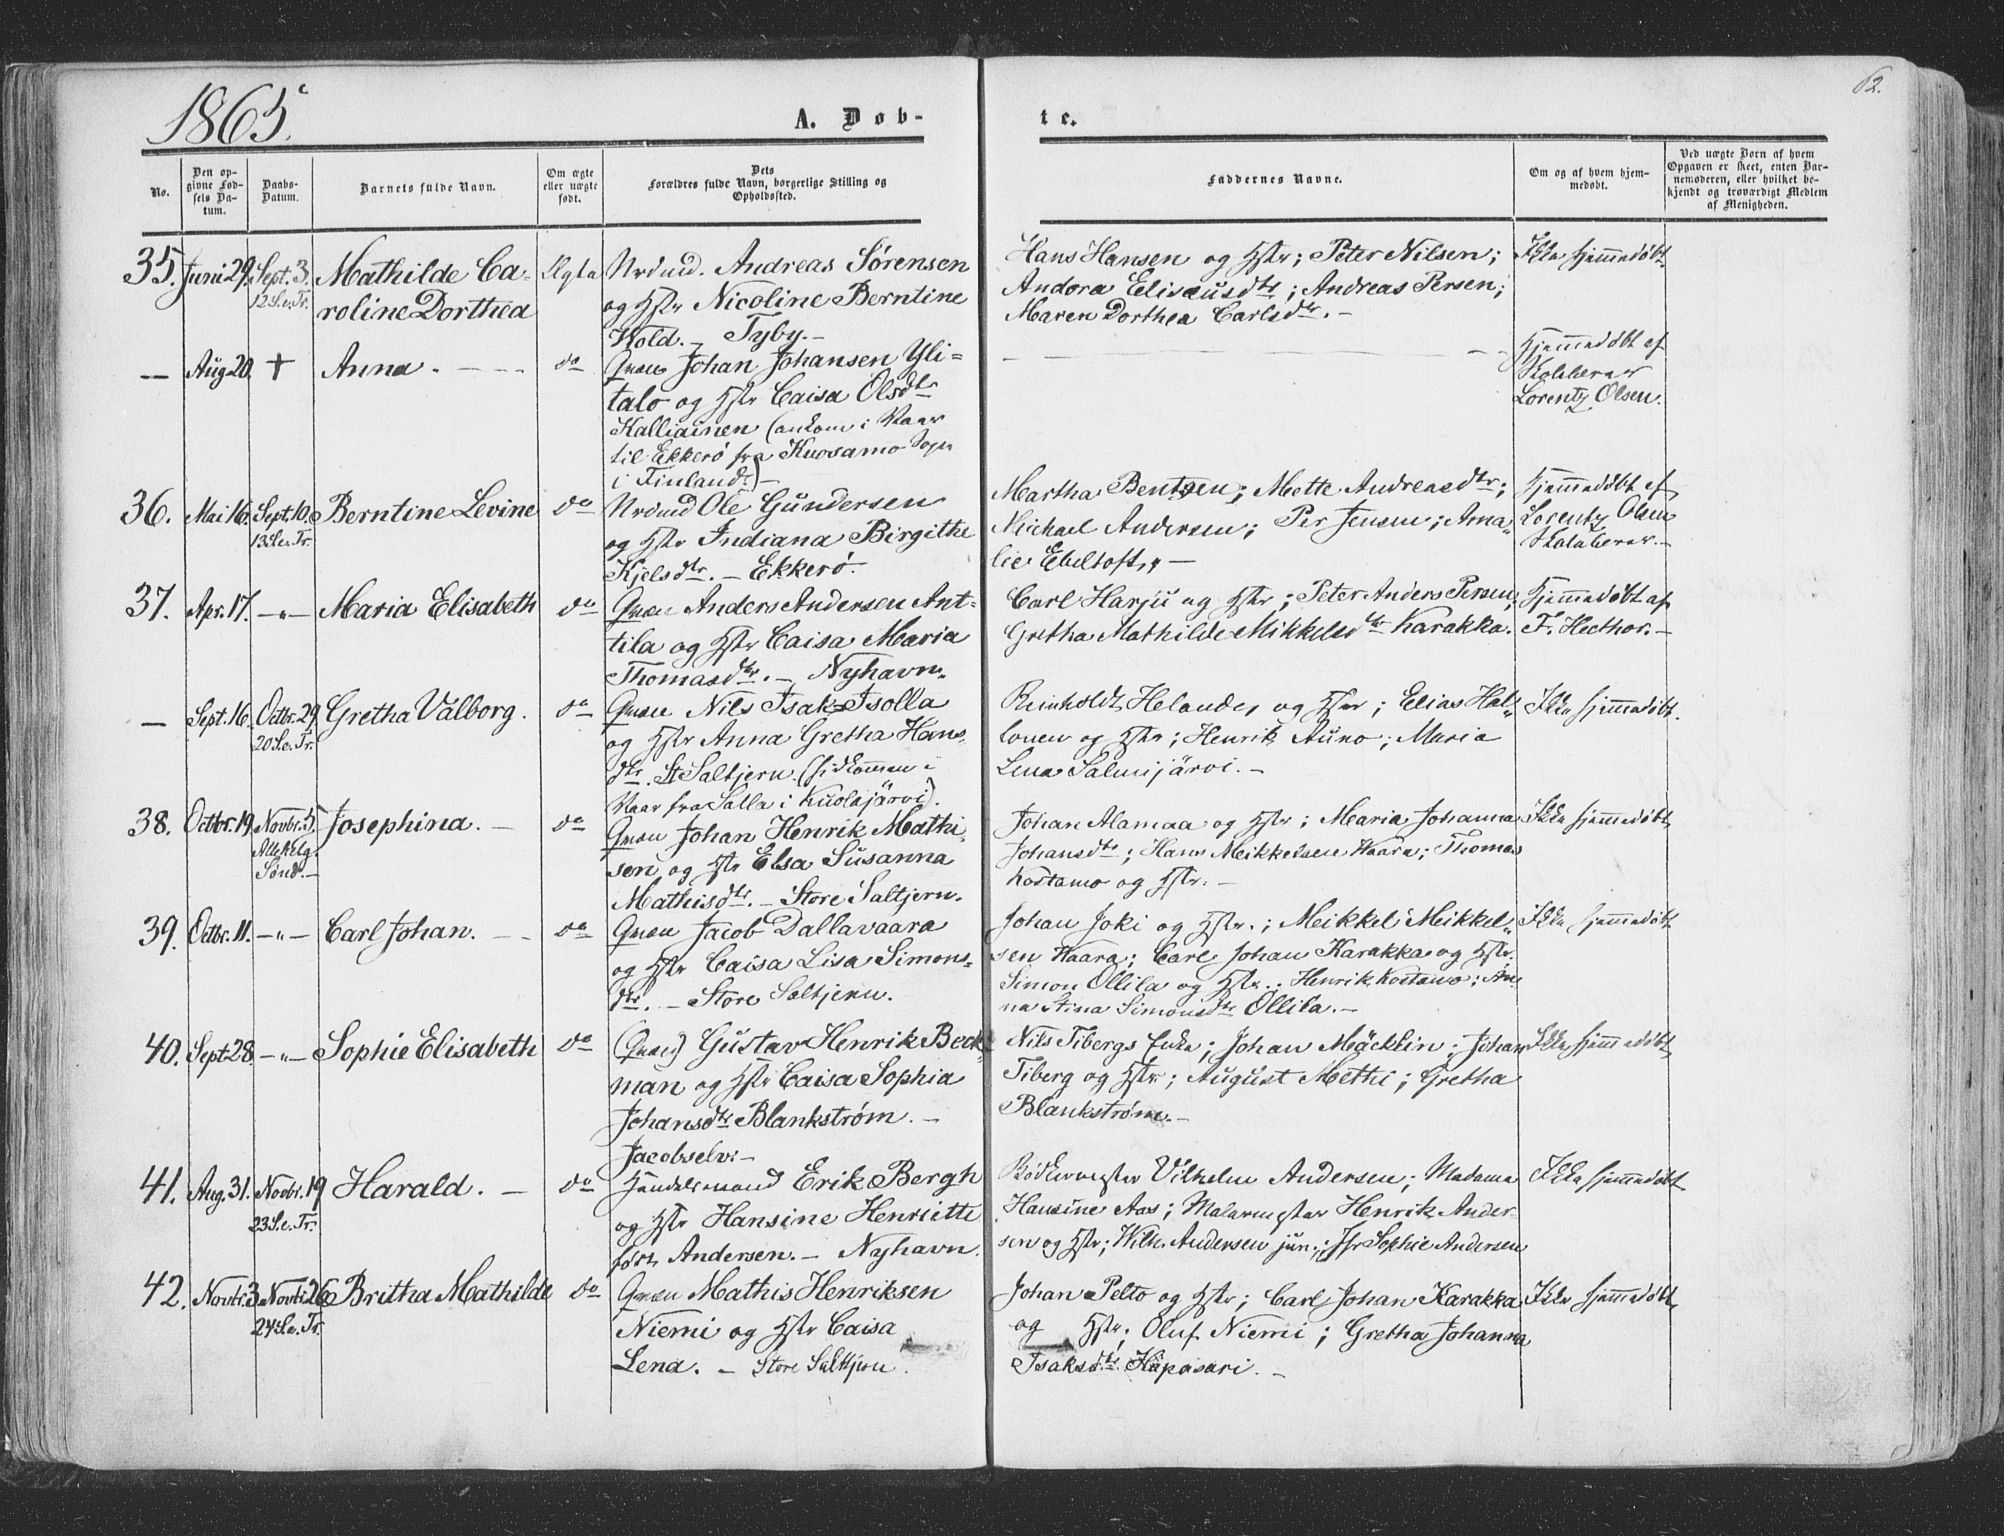 1865.
A. Døb-
te.
62.
No.
Den op-
givne Fød-
sels Da-
tum.
Daabs-
Datum.
Barnets fulde Navn.
Om ægte
eller uægte
født.
Dets
Forældres fulde Navn, borgerlige Stilling og
Opholdssted.
Faddernes Navne.
Om og af hvem hjem-
medøbt.
Ved uægte Børn af hvem
Opgaven er skeet, enten Bar-
nemoderen, eller hvilket be-
kjendt og troværdigt Medlem
af Menigheden.
35. Juni 29. Sept. 3.
12 S. e. Tr.
Mathilde Ca-
roline Dorthea
Ægte
Nrdmd. Andreas Sørensen
og Hstr Nicoline Berntine
Wold. – Tyby. –
Hans Hansen og Hstr; Peter Nilsen;
Andora Elisæusdtr; Andreas Persen;
Maren Dorthea Carlsdtr. –
Ikke hjemmedøbt
— Aug. 20. + Anna. – – –
do
Qvæn Johan Johansen Yli-
talo og Hstr Caisa Olsdtr
Kalliainen (ankom i Vaar
til Ekkerø fra Kuosamo Sogn
i Finland.) –
Hjemmedøbt af
Lorentz Olsen.
36. Mai 16. Sept. 10.
13 S. e. Tr.
Berntine Levine
do
Nrdmd Ole Gundersen
og Hstr Indiana Birgithe
Kjelsdtr. – Ekkerø.
Martha Bentsen; Mette Andreasdtr;
Michael Andersen; Per Jensen; Ama-
lie Ebeltoft. –
Hjemmedøbt af
Lorentz Olsen
37. Apr. 17. –"– Maria Elisabeth
do
Qvæn Anders Andersen Ant-
tila og Hstr Caisa Maria
Thomasdtr. – Nyhavn.
Carl Harju og Hstr; Peter Anders Persen;
Gretha Mathilde Mikkelsdtr Karakka.
Hjemmedøbt af
F. Hecthor. –
— Sept. 16. Octbr. 29.
20 S. e. Tr.
Gretha Valborg.
do
Qvæn Nils Isak Isolla
og Hstr Anna Gretha Hans-
dtr. St. Saltjern. (hidkommen i
Vaar fra Salla i Kuolajärvi).
Reinholdt Helander og Hstr; Elias Hal-
lonen og Hstr; Henrik Auno; Maria
Lena Salmijärvi. –
Ikke hjemmedøbt.
38. Octbr. 19. Novbr. 5.
Allehelg.
Sønd. –
Josephina. –
do
Qvæn Johan Henrik Mathi-
sen og Hstr Elsa Susanna
Mathisdtr. – Store Saltjern.
Johan Alamaa og Hstr; Maria Johanna
Johansdtr; Hans Meikkelsen Kaara; Thomas
Kostamo og Hstr. –
Ikke hjemmedøbt
39. Octbr. 11. –"– Carl Johan. – –
do
Qvæn Jacob Dallavaara
og Hstr Caisa Lisa Simons-
dtr. – Store Saltjern.
Johan Joki og Hstr.; Meikkel Meikkel-
sen Kaara; Carl Johan Karakka og Hstr.
Simon Ollila og Hstr.; Henrik Kostamo; An-
na Stina Simonsdtr Ollila. –
Ikke hjemmedøbt
40. Sept. 28. –"– Sophie Elisabeth
do
(Qvæn) Gustav Henrik Beck-
man og Hstr Caisa Sophia
Johansdtr Blankstrøm. –
Jacobselv. –
Nils Tibergs Enke; Johan Mäcklin; Johan
Tiberg og Hstr; August Methi; Gretha
Blankstrøm. –
Ikke hjemmedøbt
41. Aug. 31. Novbr. 19
23 S. e. Tr.
Harald. –
do
Handelsmand Erik Bergh
og Hstr Hansine Henriette
født Andersen. – Nyhavn.
Bødkermester Vilhelm Andersen; Madame
Hansine Aas; Malermester Henrik Ander-
sen og Hstr; Wilh. Andersen jun.; Jfr Sophie Andersen
Ikke hjemmedøbt
42. Novbr. 3. Novbr. 26
24 S. e. Tr.
Britha Mathilde
do
Qvæn Mathis Henriksen
Niemi og Hstr Caisa
Lena. – Store Saltjern.
Johan Pelto og Hstr; Carl Johan Karakka
og Hstr; Oluf Niemi; Gretha Johanna
Isaksdtr Häpasari. –
Ikke hjemmedøbt